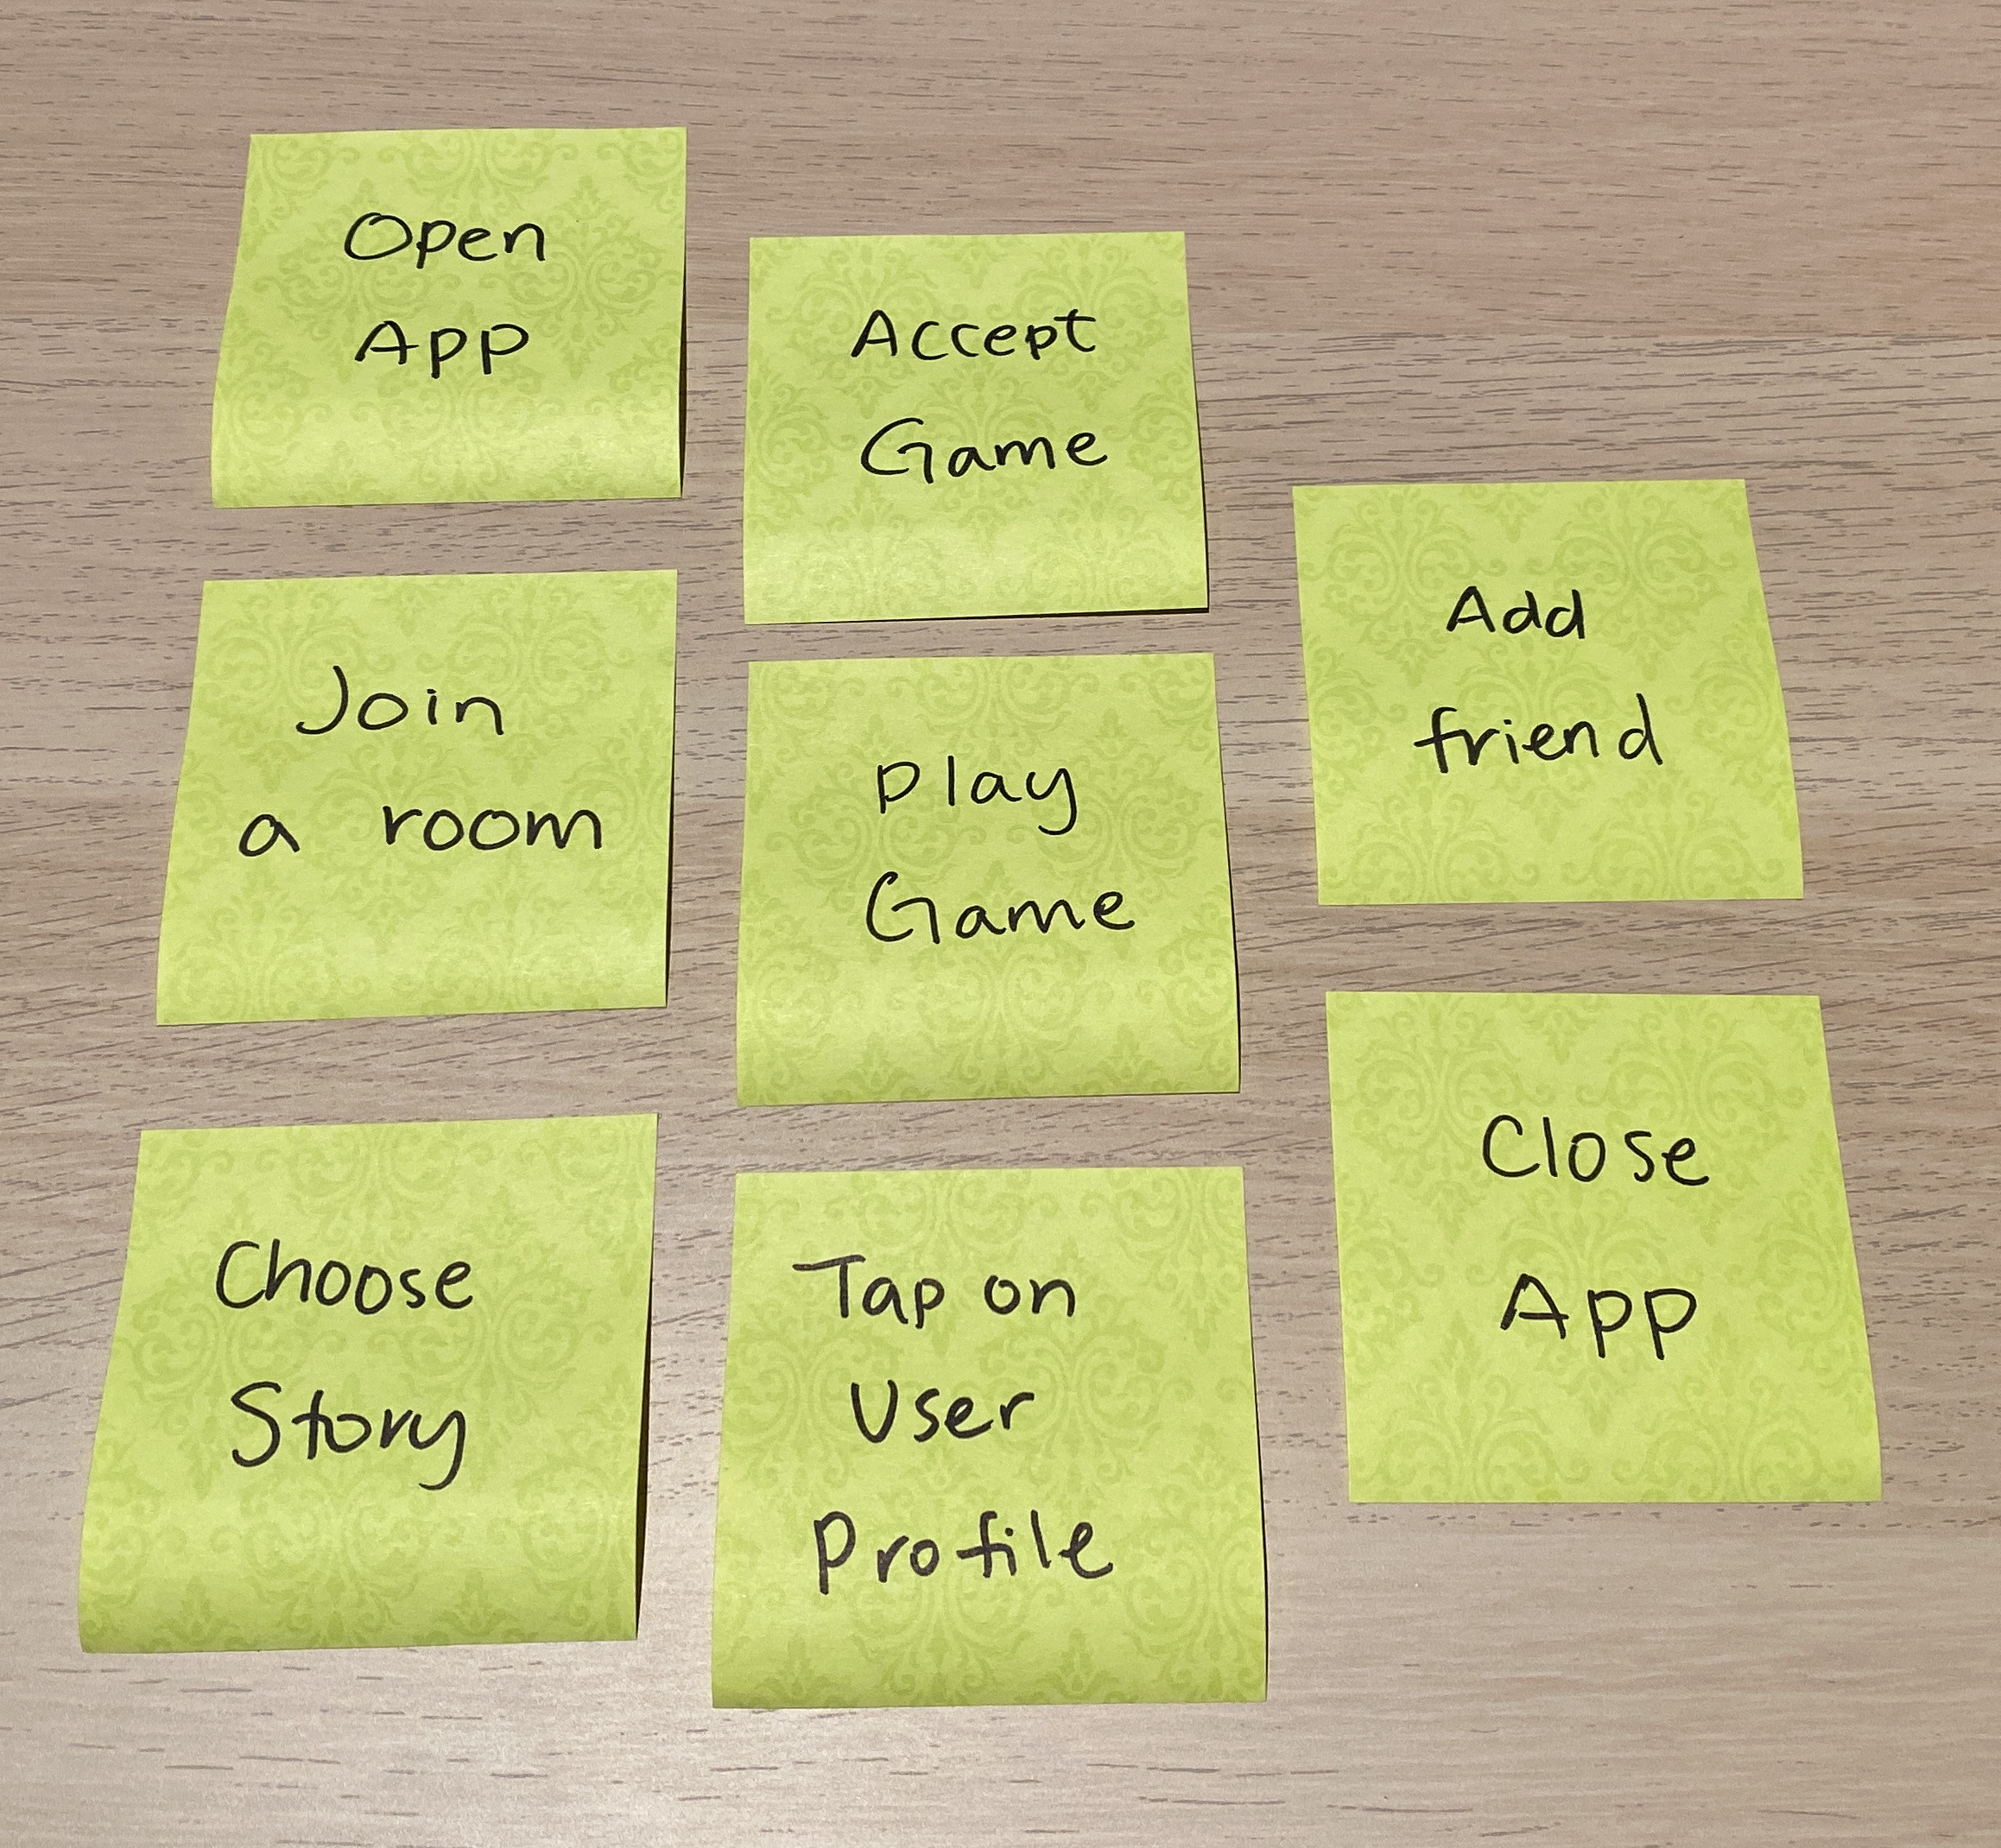 Open
App
Join
a room
Choose
Story
Accept
Game
Play
Game
Tap on
User
Profile
Add
friend
Close
App